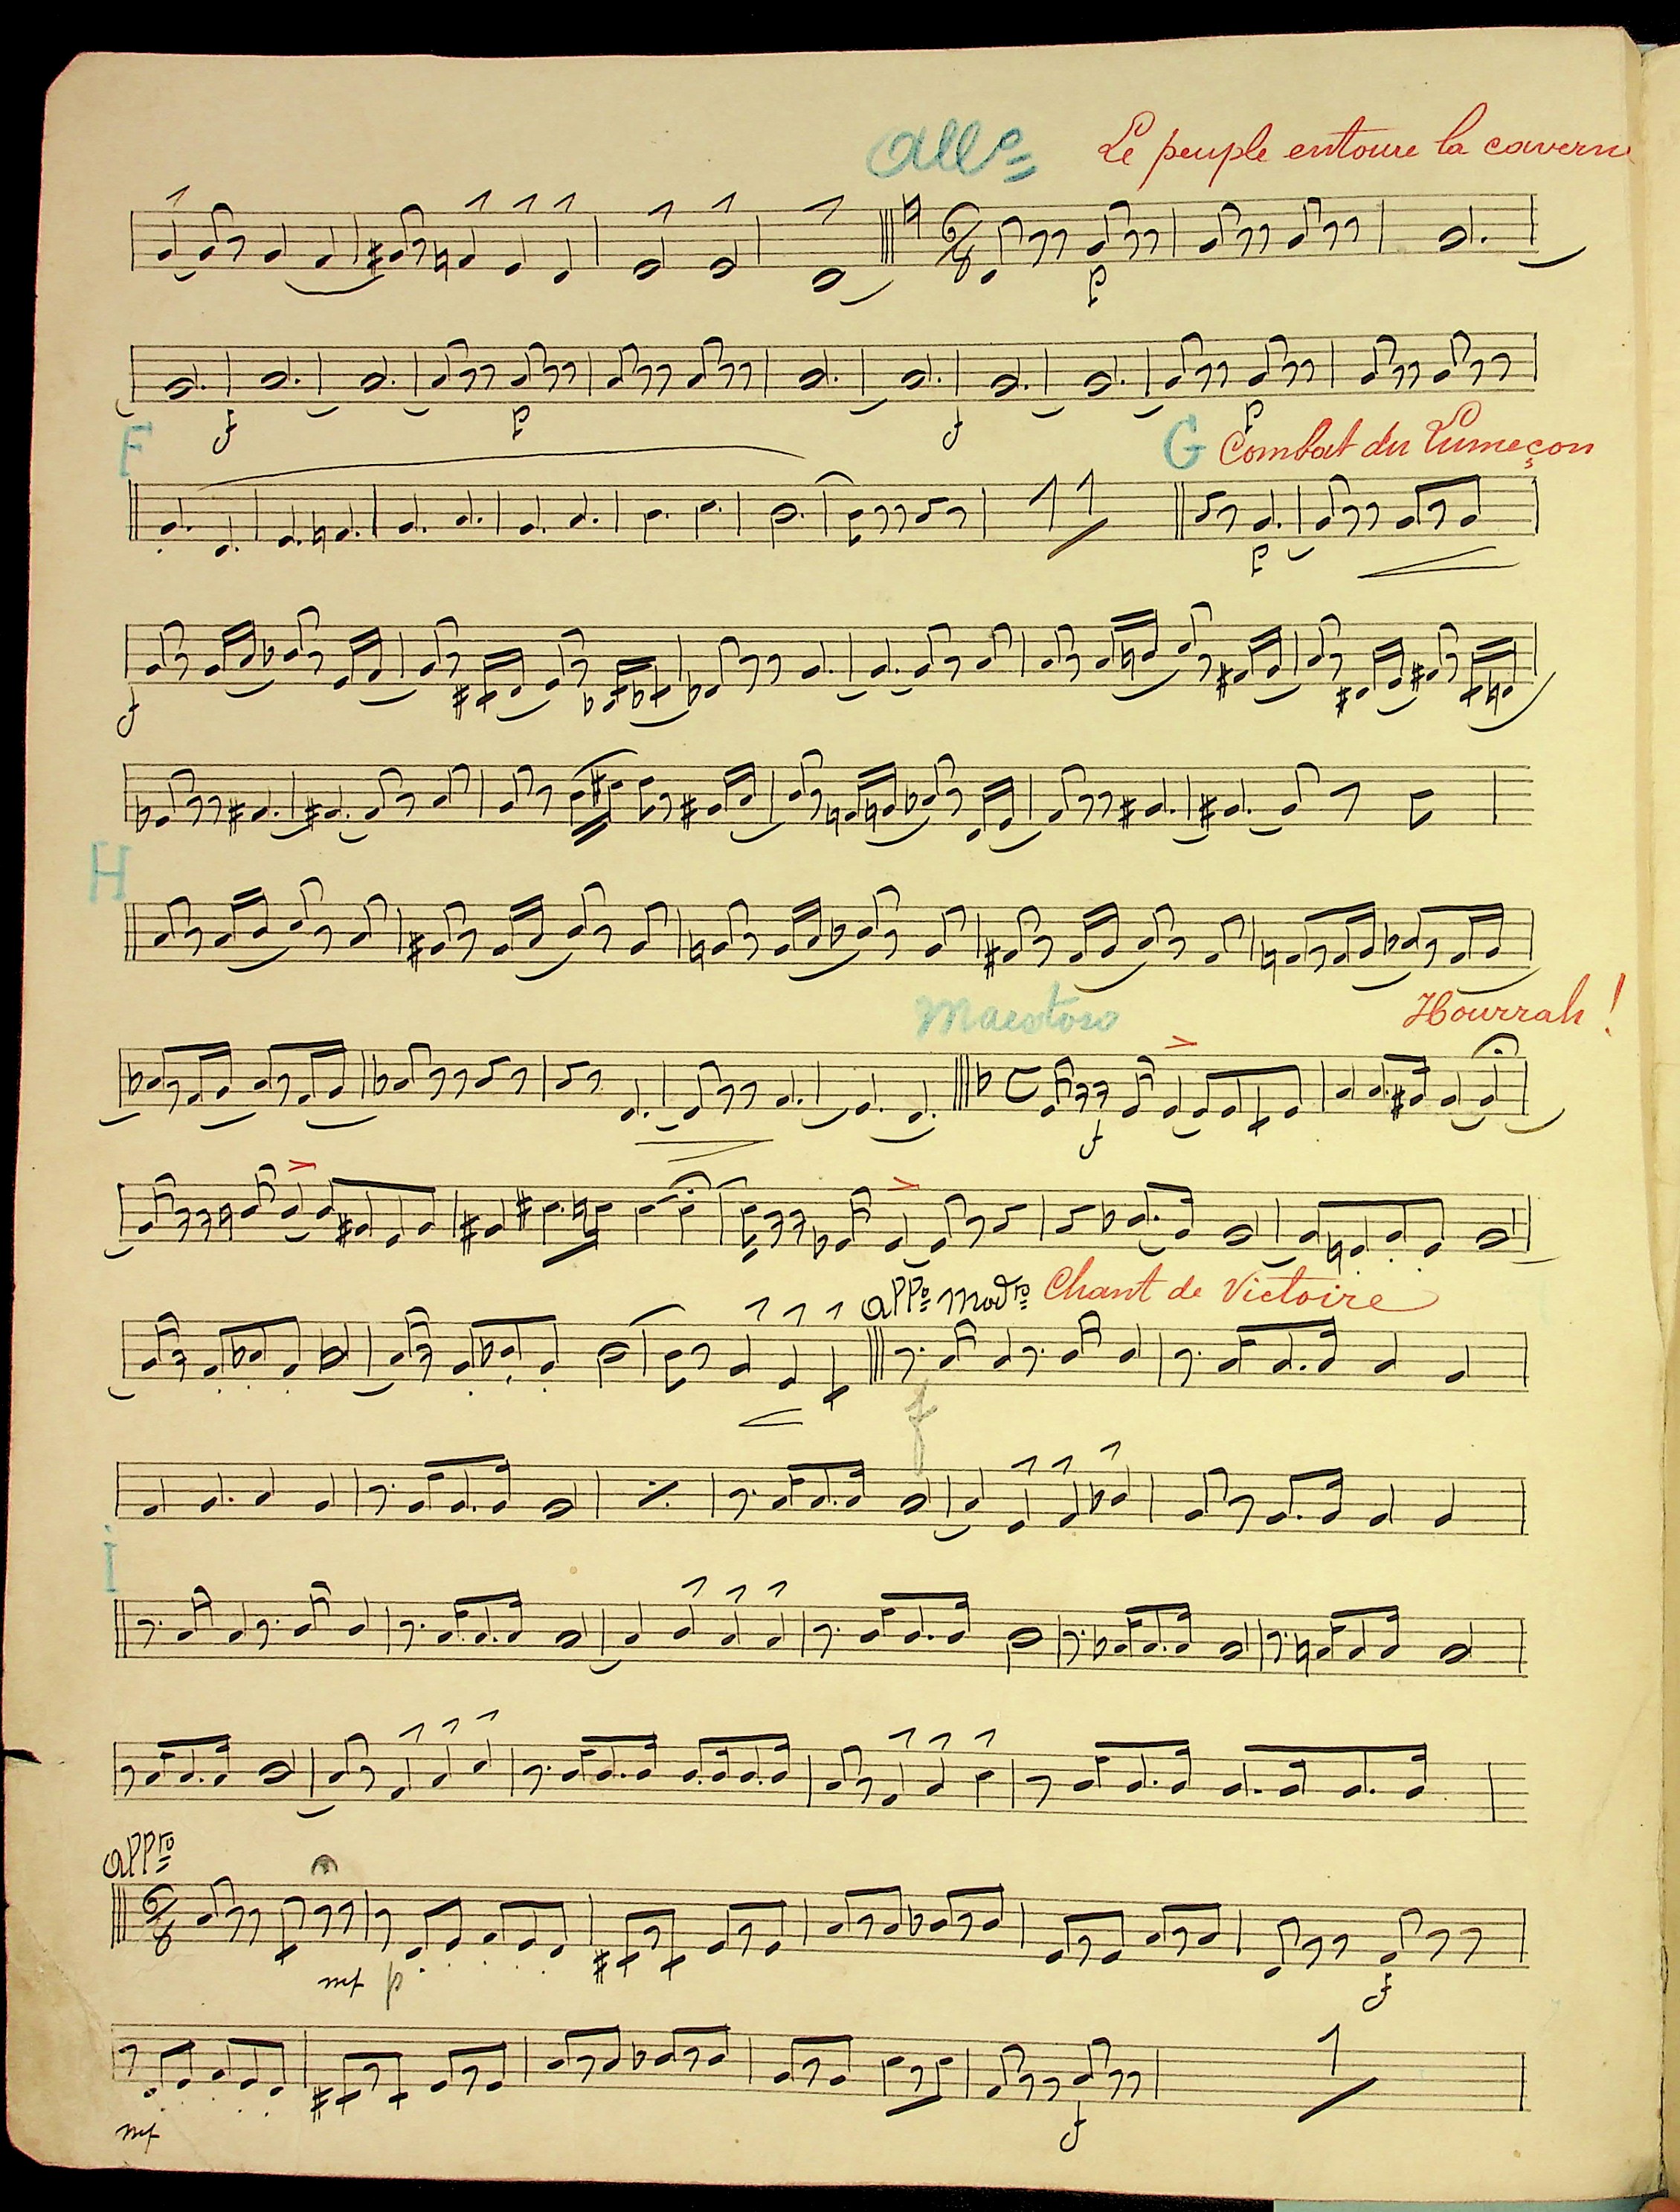 Allº Le peuple entoure la caverne
6/8 p
f p f p
F G Combat du Lumeçon
p
f
H
Maestoso Hourrah !
C f
Allº Modto Chant de Victoire
f
I
Allto
6/8 mf p f
mf f